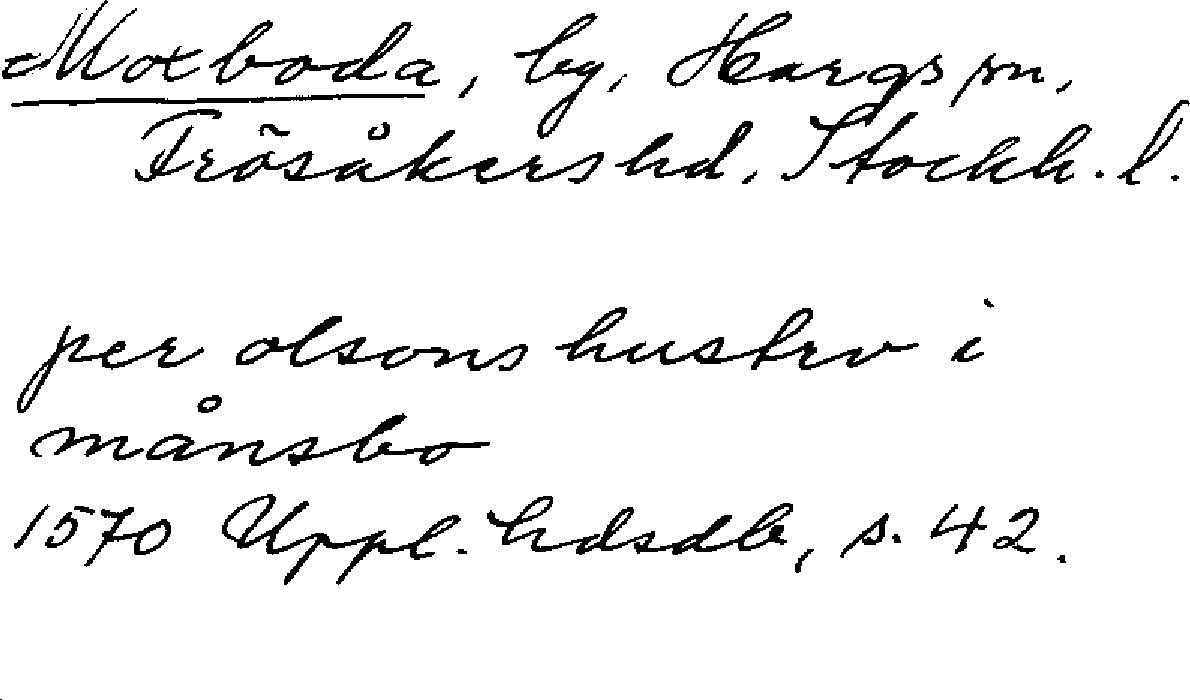 Moxboda, by, Hargs sn,
Frösåkers hd. Stockh. l.
per olsons hustrv i
månsbo
1570 Uppl. hdsdb, s. 42.